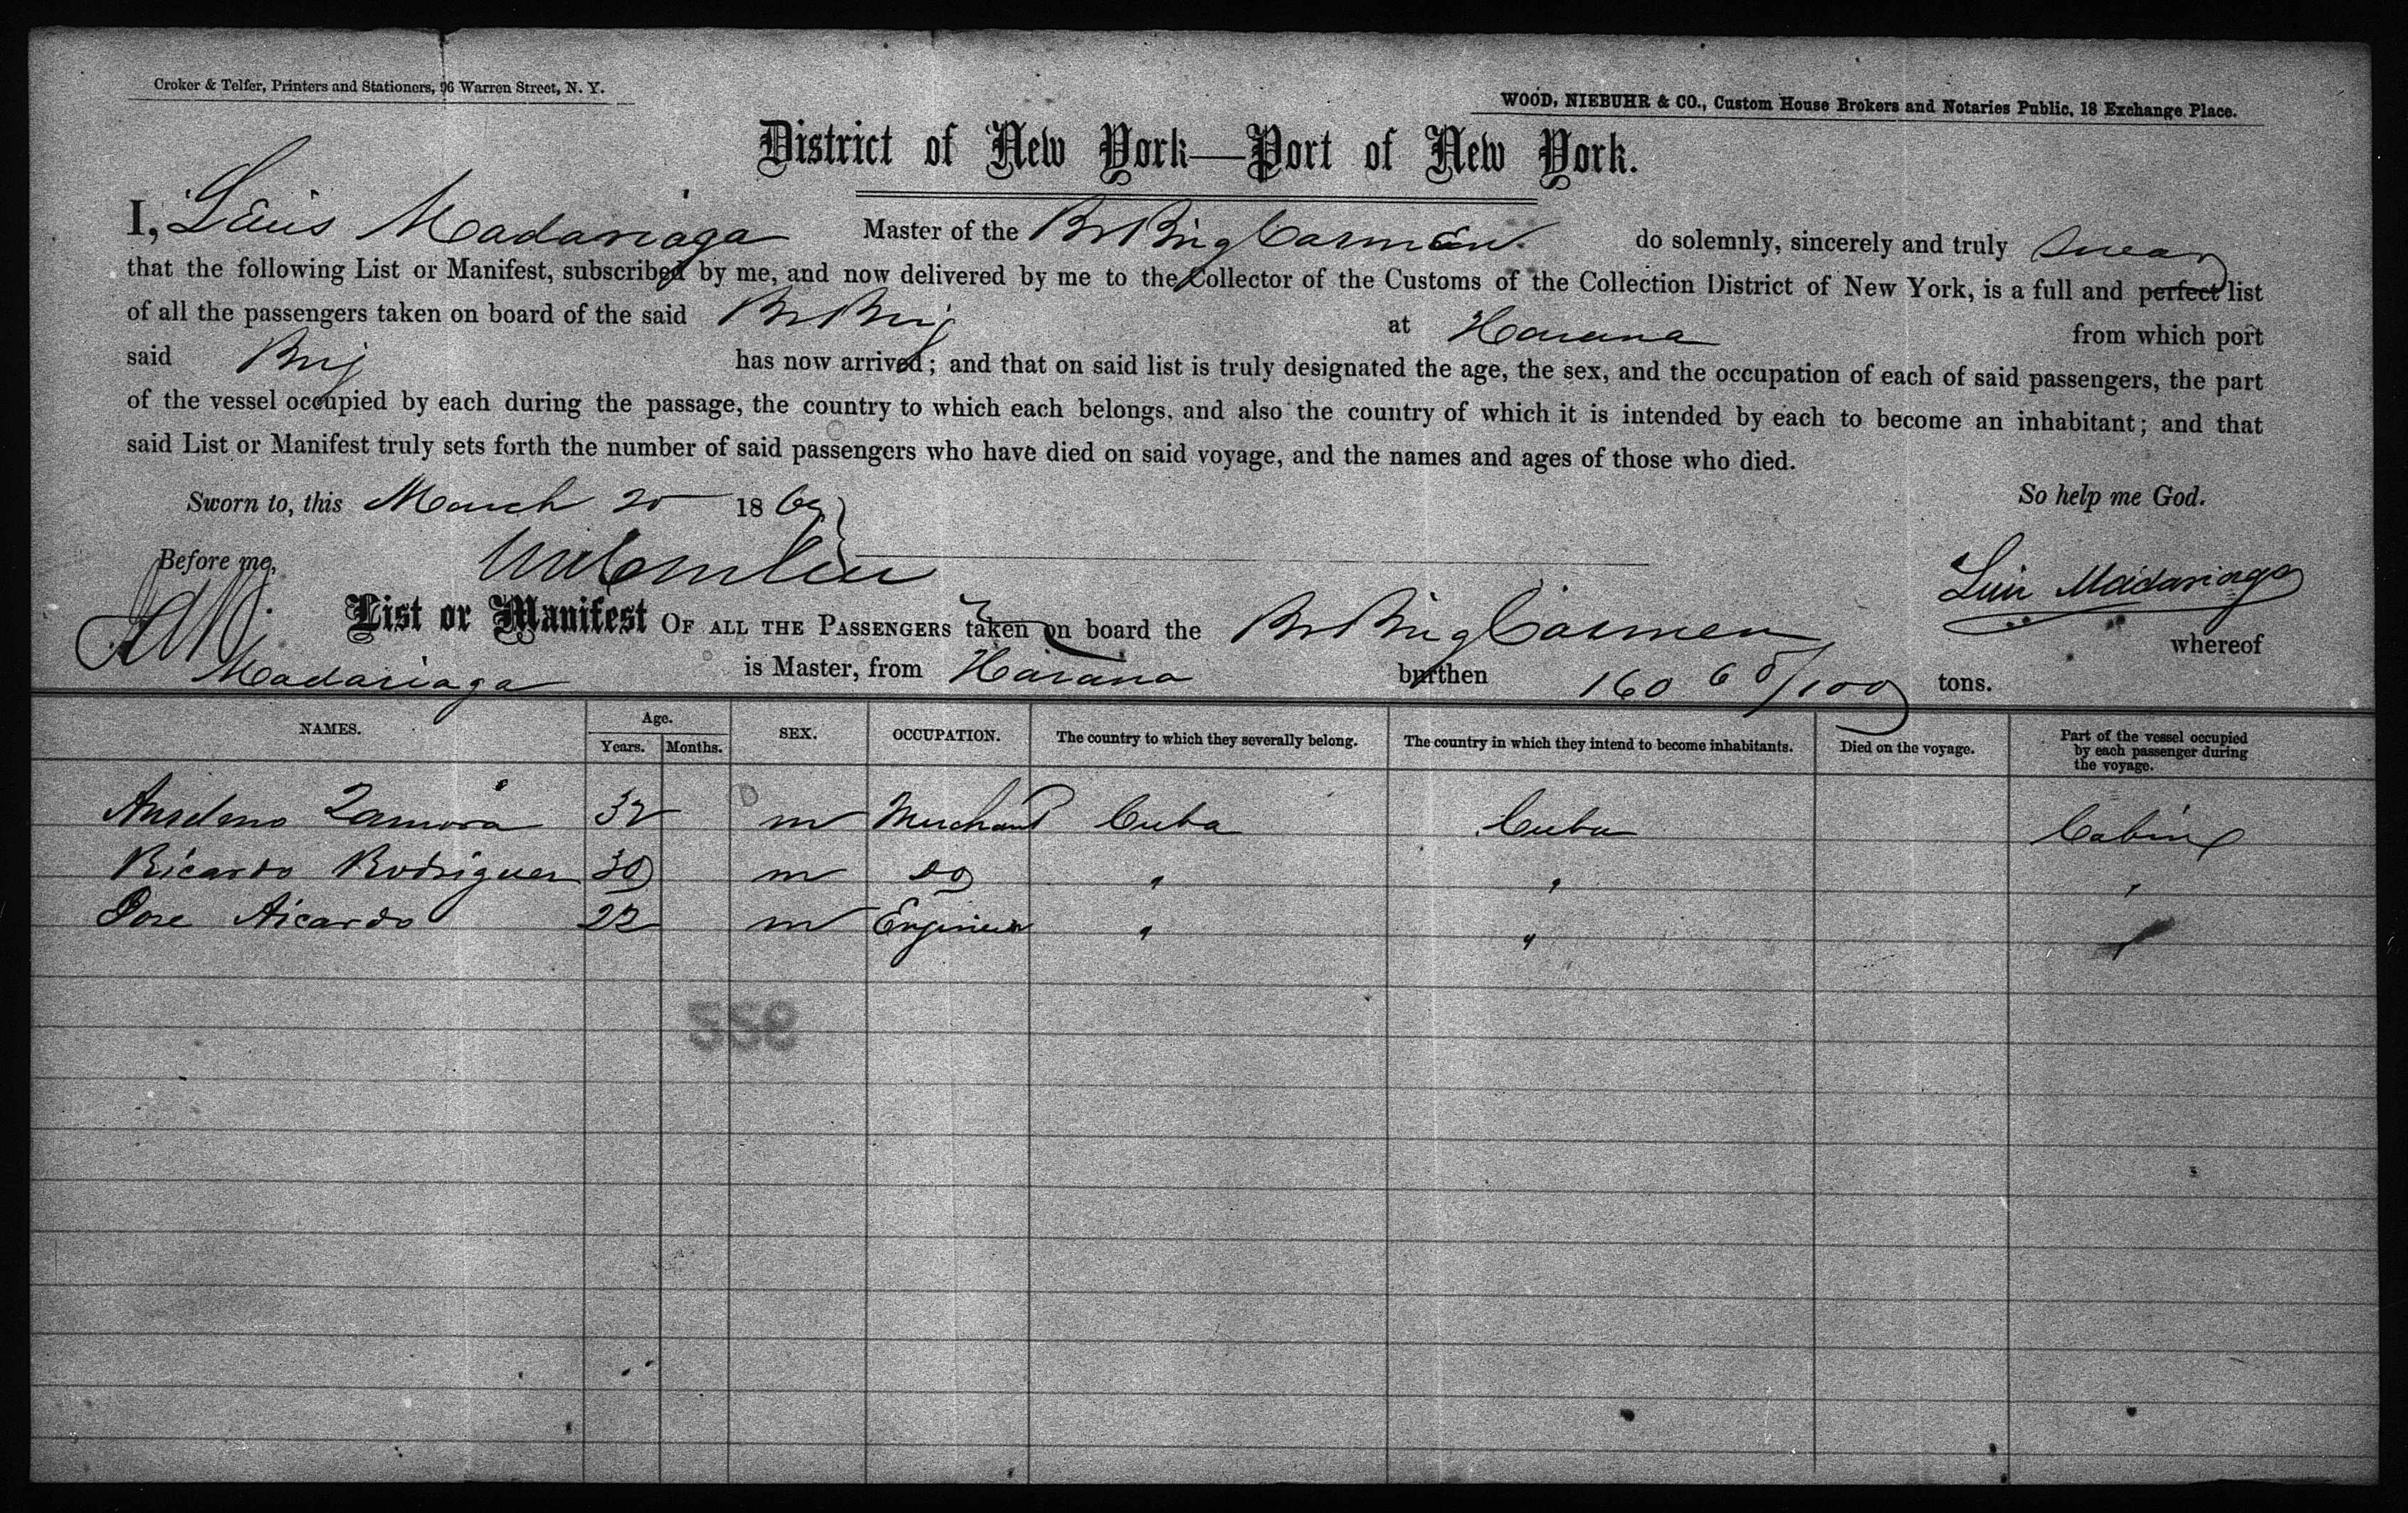 Croker & Telfer, Printers and Stationers, 96 Warren Street, N. Y.
WOOD, NIEBUHR & CO., Custom House Brokers and Notaries Public, 18 Exchange Place.
District of New York—Port of New York.
I, Luis Madariaga Master of the Br Brig Carmen do solemnly, sincerely and truly swear
that the following List or Manifest, subscribed by me, and now delivered by me to the Collector of the Customs of the Collection District of New York, is a full and perfect list
of all the passengers taken on board of the said Br Brig at Havana from which port
said Brig has now arrived; and that on said list is truly designated the age, the sex, and the occupation of each of said passengers, the part
of the vessel occupied by each during the passage, the country to which each belongs, and also the country of which it is intended by each to become an inhabitant; and that
said List or Manifest truly sets forth the number of said passengers who have died on said voyage, and the names and ages of those who died.
Sworn to, this March 20 1869 So help me God.
Before me, Luis Madariaga
List or Manifest OF ALL THE PASSENGERS taken on board the Br Brig Carmen whereof
Madariaga is Master, from Havana burthen 160 68/100 tons.
NAMES. Age. Years. Months. SEX. OCCUPATION. The country to which they severally belong. The country in which they intend to become inhabitants. Died on the voyage. Part of the vessel occupied by each passenger during the voyage.
Anselmo Zamora 32 m Merchant Cuba Cuba Cabin
Ricardo Rodriguez 30 m do " " "
Jose Aicardo 22 m Engineer " " "
922